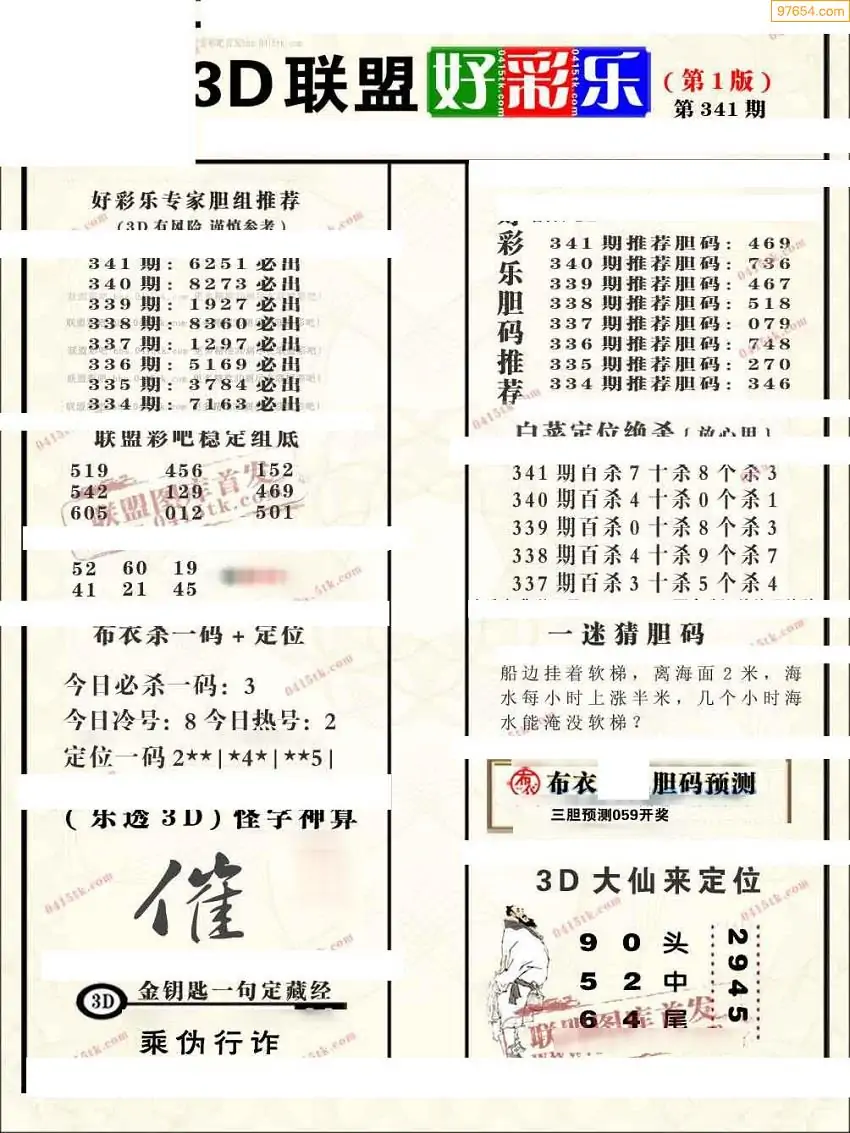 97654.com
3D联盟好彩乐
(第1版)
第341期
好彩乐专家胆组推荐
(3D有风险 谨慎参考)
341期：6251必出
340期：8273必出
339期：1927必出
338期：8360必出
337期：1297必出
336期：5169必出
335期：3784必出
334期：7163必出
联盟彩吧稳定组底
519 456 152
542 129 469
605 012 501
52 60 19
41 21 45
布衣杀一码+定位
今日必杀一码：3
今日冷号：8 今日热号：2
定位一码2**|*4*|**5|
(乐透3D)怪字神算
催
3D 金钥匙一句定藏经
乘伪行诈
好彩乐胆码推荐
341期推荐胆码：469
340期推荐胆码：736
339期推荐胆码：467
338期推荐胆码：518
337期推荐胆码：079
336期推荐胆码：748
335期推荐胆码：270
334期推荐胆码：346
白菜定位绝杀{放心用}
341期百杀7十杀8个杀3
340期百杀4十杀0个杀1
339期百杀0十杀8个杀3
338期百杀4十杀9个杀7
337期百杀3十杀5个杀4
一迷猜胆码
船边挂着软梯，离海面2米，海
水每小时上涨半米，几个小时海
水能淹没软梯？
布衣 胆码预测
三胆预测059开奖
3D大仙来定位
9 0 头
5 2 中
6 4 尾
2945
联盟图库首发
0415tk.com